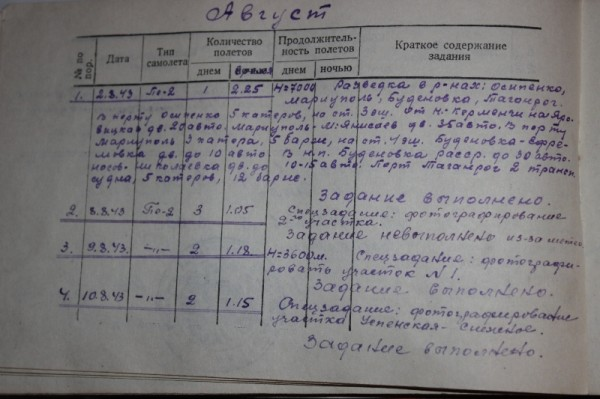 Август
№ по пор.
Дата
Тип самолета
Количество полетов
днем
время
Продолжитель-
ность полетов
днем
ночью
Краткое содержание задания
1. 2.8.43 Пе-2 1 2.25 Н=7000 Разведка в р-нах: Осипенко,
Мариуполь, Буденовка, Таганрог.
В порту Осипенко 5 катеров, на ст. 3 эш. от Н.
дв. 25 авто. Мариуполь - дв. 35 авто. В порту
Мариуполь 3 катера, 5 барж, на ст. 4 эш. Буденовка - Ефре-
мовка дв. до 10 авто. В н.п. Буденовка расср. до 30 авто.
Носово - Николаевка дв. до 10-15 авто. Порт Таганрог 2 трансп.
судна, 5 катеров, 12 барж.
Задание выполнено.
2. 8.8.43 Пе-2 3 1.05 Спецзадание: фотографирование
2 участка.
Задание невыполнено из-за метео.
3. 9.8.43. -"- 2 1.18 Н=3600м. Спецзадание: фотографи-
ровать участок №1.
Задание выполнено.
4. 10.8.43 -"- 2 1.15 Спецзадание: фотографирование
участка Успенская - Снежное.
Задание выполнено.